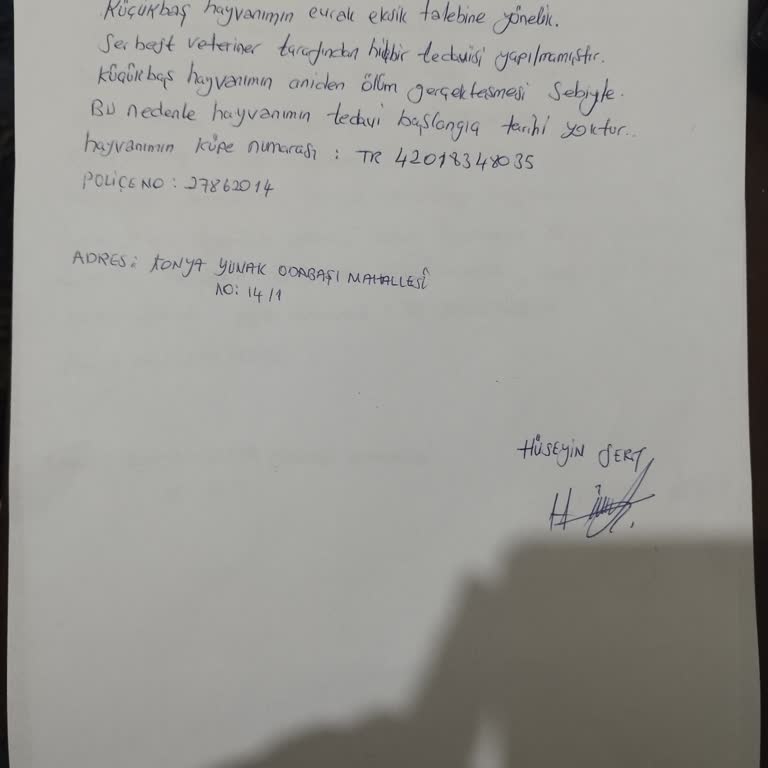 Küçükbaş hayvanımın evrak eksik talebine yönelik.
Serbest veteriner tarafından hiçbir tedavisi yapılmamıştır.
Küçükbaş hayvanımın aniden ölüm gerçekleşmesi sebiyle.
Bu nedenle hayvanımın tedavi başlangıç tarihi yoktur..
hayvanımın küpe numarası : TR 42018348035
POLİÇE NO : 27862014
ADRES: KONYA YUNAK ODABAŞI MAHALLESİ
NO: 14/1
HÜSEYİN SERT